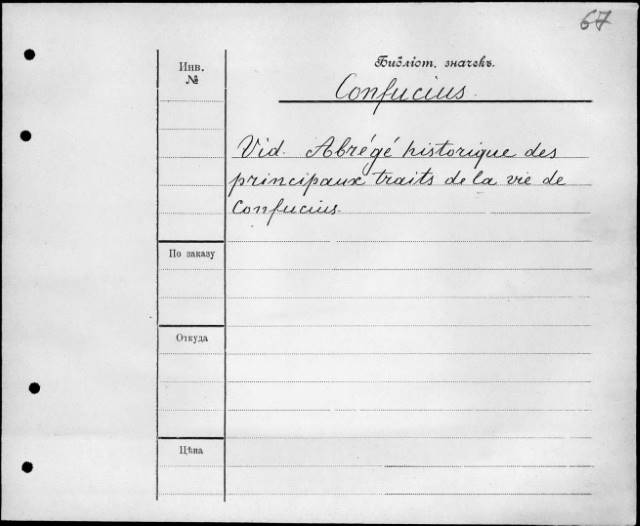 67
Инв.
№
Библіот. значекъ.
Confucius.
Vid. Abrégé historique des
principaux traits de la vie de
Confucius.
По заказу
Откуда
Цѣна